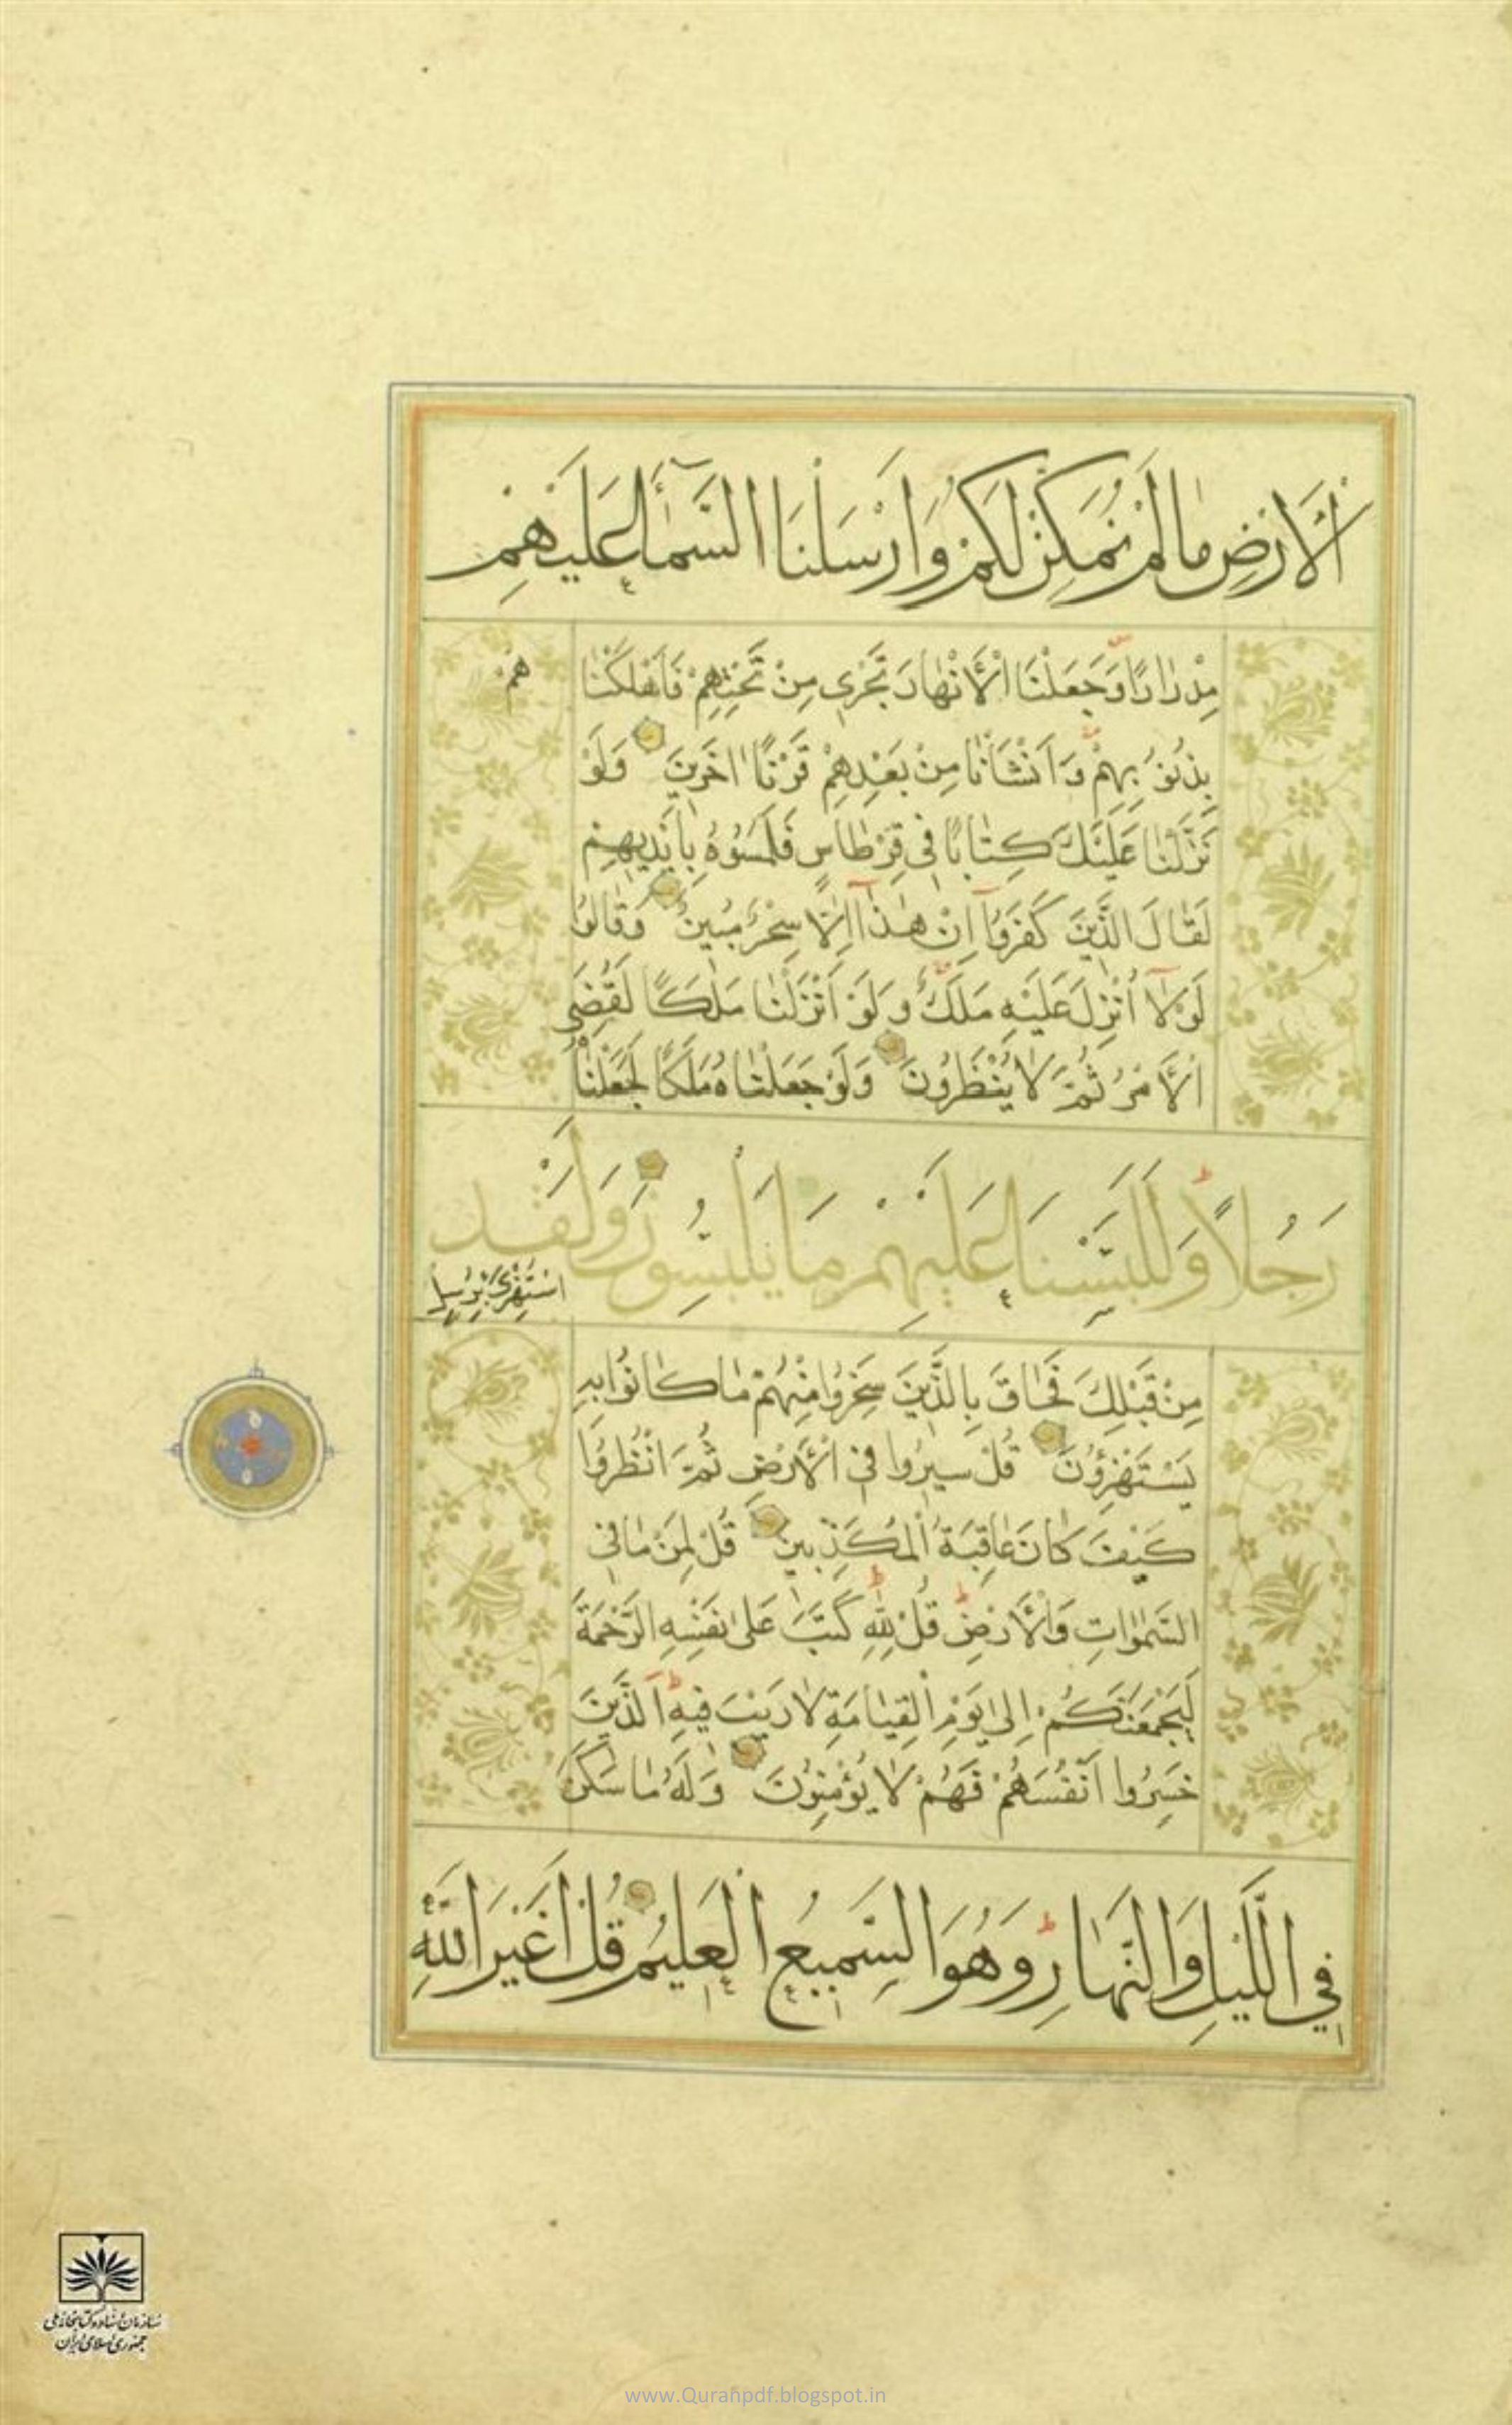 الْأَرْضِ مَا لَمْ نُمَكِّنْ لَكُمْ وَأَرْسَلْنَا السَّمَاءَ عَلَيْهِمْ
مِدْرَارًا وَجَعَلْنَا الْأَنْهَارَ تَجْرِي مِنْ تَحْتِهِمْ فَأَهْلَكْنَا
هم
بِذُنُوبِهِمْ وَأَنْشَأْنَا مِنْ بَعْدِهِمْ قَرْنًا اٰخَرِينَ وَلَوْ
نَزَّلْنَا عَلَيْكَ كِتَابًا فِي قِرْطَاسٍ فَلَمَسُوهُ بِأَيْدِيهِمْ
لَقَالَ الَّذِينَ كَفَرُوا إِنْ هٰذَا إِلَّا سِحْرٌ مُبِينٌ وَقَالُوا
لَوْلَا أُنْزِلَ عَلَيْهِ مَلَكٌ وَلَوْ أَنْزَلْنَا مَلَكًا لَقُضِيَ
الْأَمْرُ ثُمَّ لَا يُنْظَرُونَ وَلَوْ جَعَلْنَاهُ مَلَكًا لَجَعَلْنَاهُ
رَجُلًا وَلَلَبَسْنَا عَلَيْهِمْ مَا يَلْبِسُونَ وَلَقَدِ
اسْتُهْزِئَ بِرُسُلٍ
مِنْ قَبْلِكَ فَحَاقَ بِالَّذِينَ سَخِرُوا مِنْهُمْ مَا كَانُوا بِهِ
يَسْتَهْزِؤُنَ قُلْ سِيرُوا فِي الْأَرْضِ ثُمَّ انْظُرُوا
كَيْفَ كَانَ عَاقِبَةُ الْمُكَذِّبِينَ قُلْ لِمَنْ مَا فِي
السَّمٰوَاتِ وَالْأَرْضِ قُلْ لِلّٰهِ كَتَبَ عَلٰى نَفْسِهِ الرَّحْمَةَ
لَيَجْمَعَنَّكُمْ إِلٰى يَوْمِ الْقِيَامَةِ لَا رَيْبَ فِيهِ الَّذِينَ
خَسِرُوا أَنْفُسَهُمْ فَهُمْ لَا يُؤْمِنُونَ وَلَهُ مَا سَكَنَ
فِي اللَّيْلِ وَالنَّهَارِ وَهُوَ السَّمِيعُ الْعَلِيمُ قُلْ أَغَيْرَ اللّٰهِ
سازمان اسناد و کتابخانه ملی
جمهوری اسلامی ایران
www.Quranpdf.blogspot.in